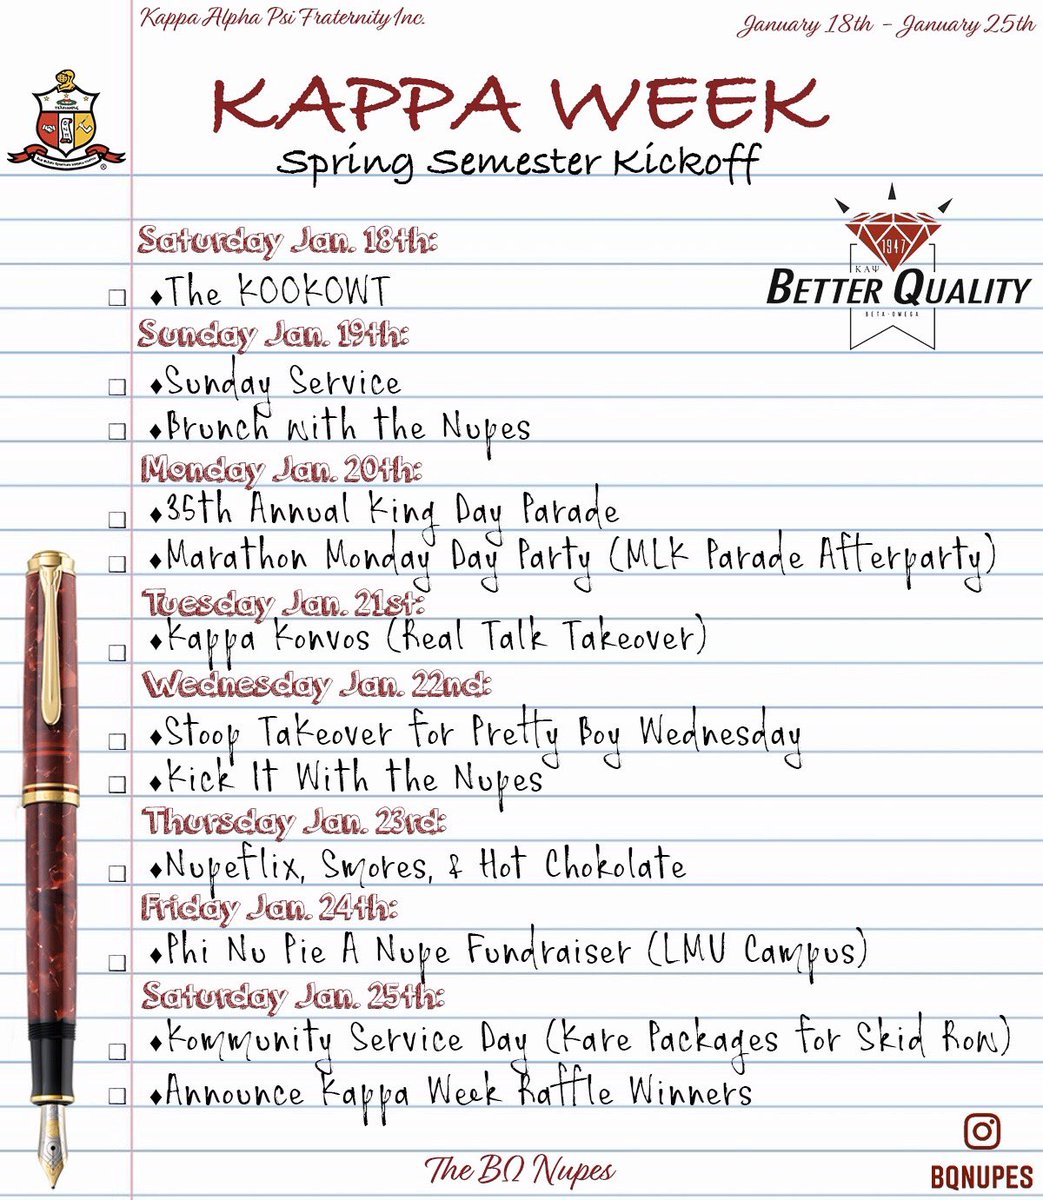 Kappa Alpha Psi Fraternity Inc.
January 18th - January 25th
KAPPA WEEK
Spring Semester Kickoff
1947
ΚΑΨ
BETTER QUALITY
BETA-OMEGA
Saturday Jan. 18th:
♦The KOOKOWT
Sunday Jan. 19th:
♦Sunday Service
♦Brunch with the Nupes
Monday Jan. 20th:
♦35th Annual King Day Parade
♦Marathon Monday Day Party (MLK Parade Afterparty)
Tuesday Jan. 21st:
♦Kappa Konvos (Real Talk Takeover)
Wednesday Jan. 22nd:
♦Stoop Takeover for Pretty Boy Wednesday
♦Kick It With the Nupes
Thursday Jan. 23rd:
♦Nupeflix, Smores, & Hot Chokolate
Friday Jan. 24th:
♦Phi Nu Pie A Nupe Fundraiser (LMU Campus)
Saturday Jan. 25th:
♦Kommunity Service Day (Kare Packages for Skid Row)
♦Announce Kappa Week Raffle Winners
The BΩ Nupes
BQNUPES